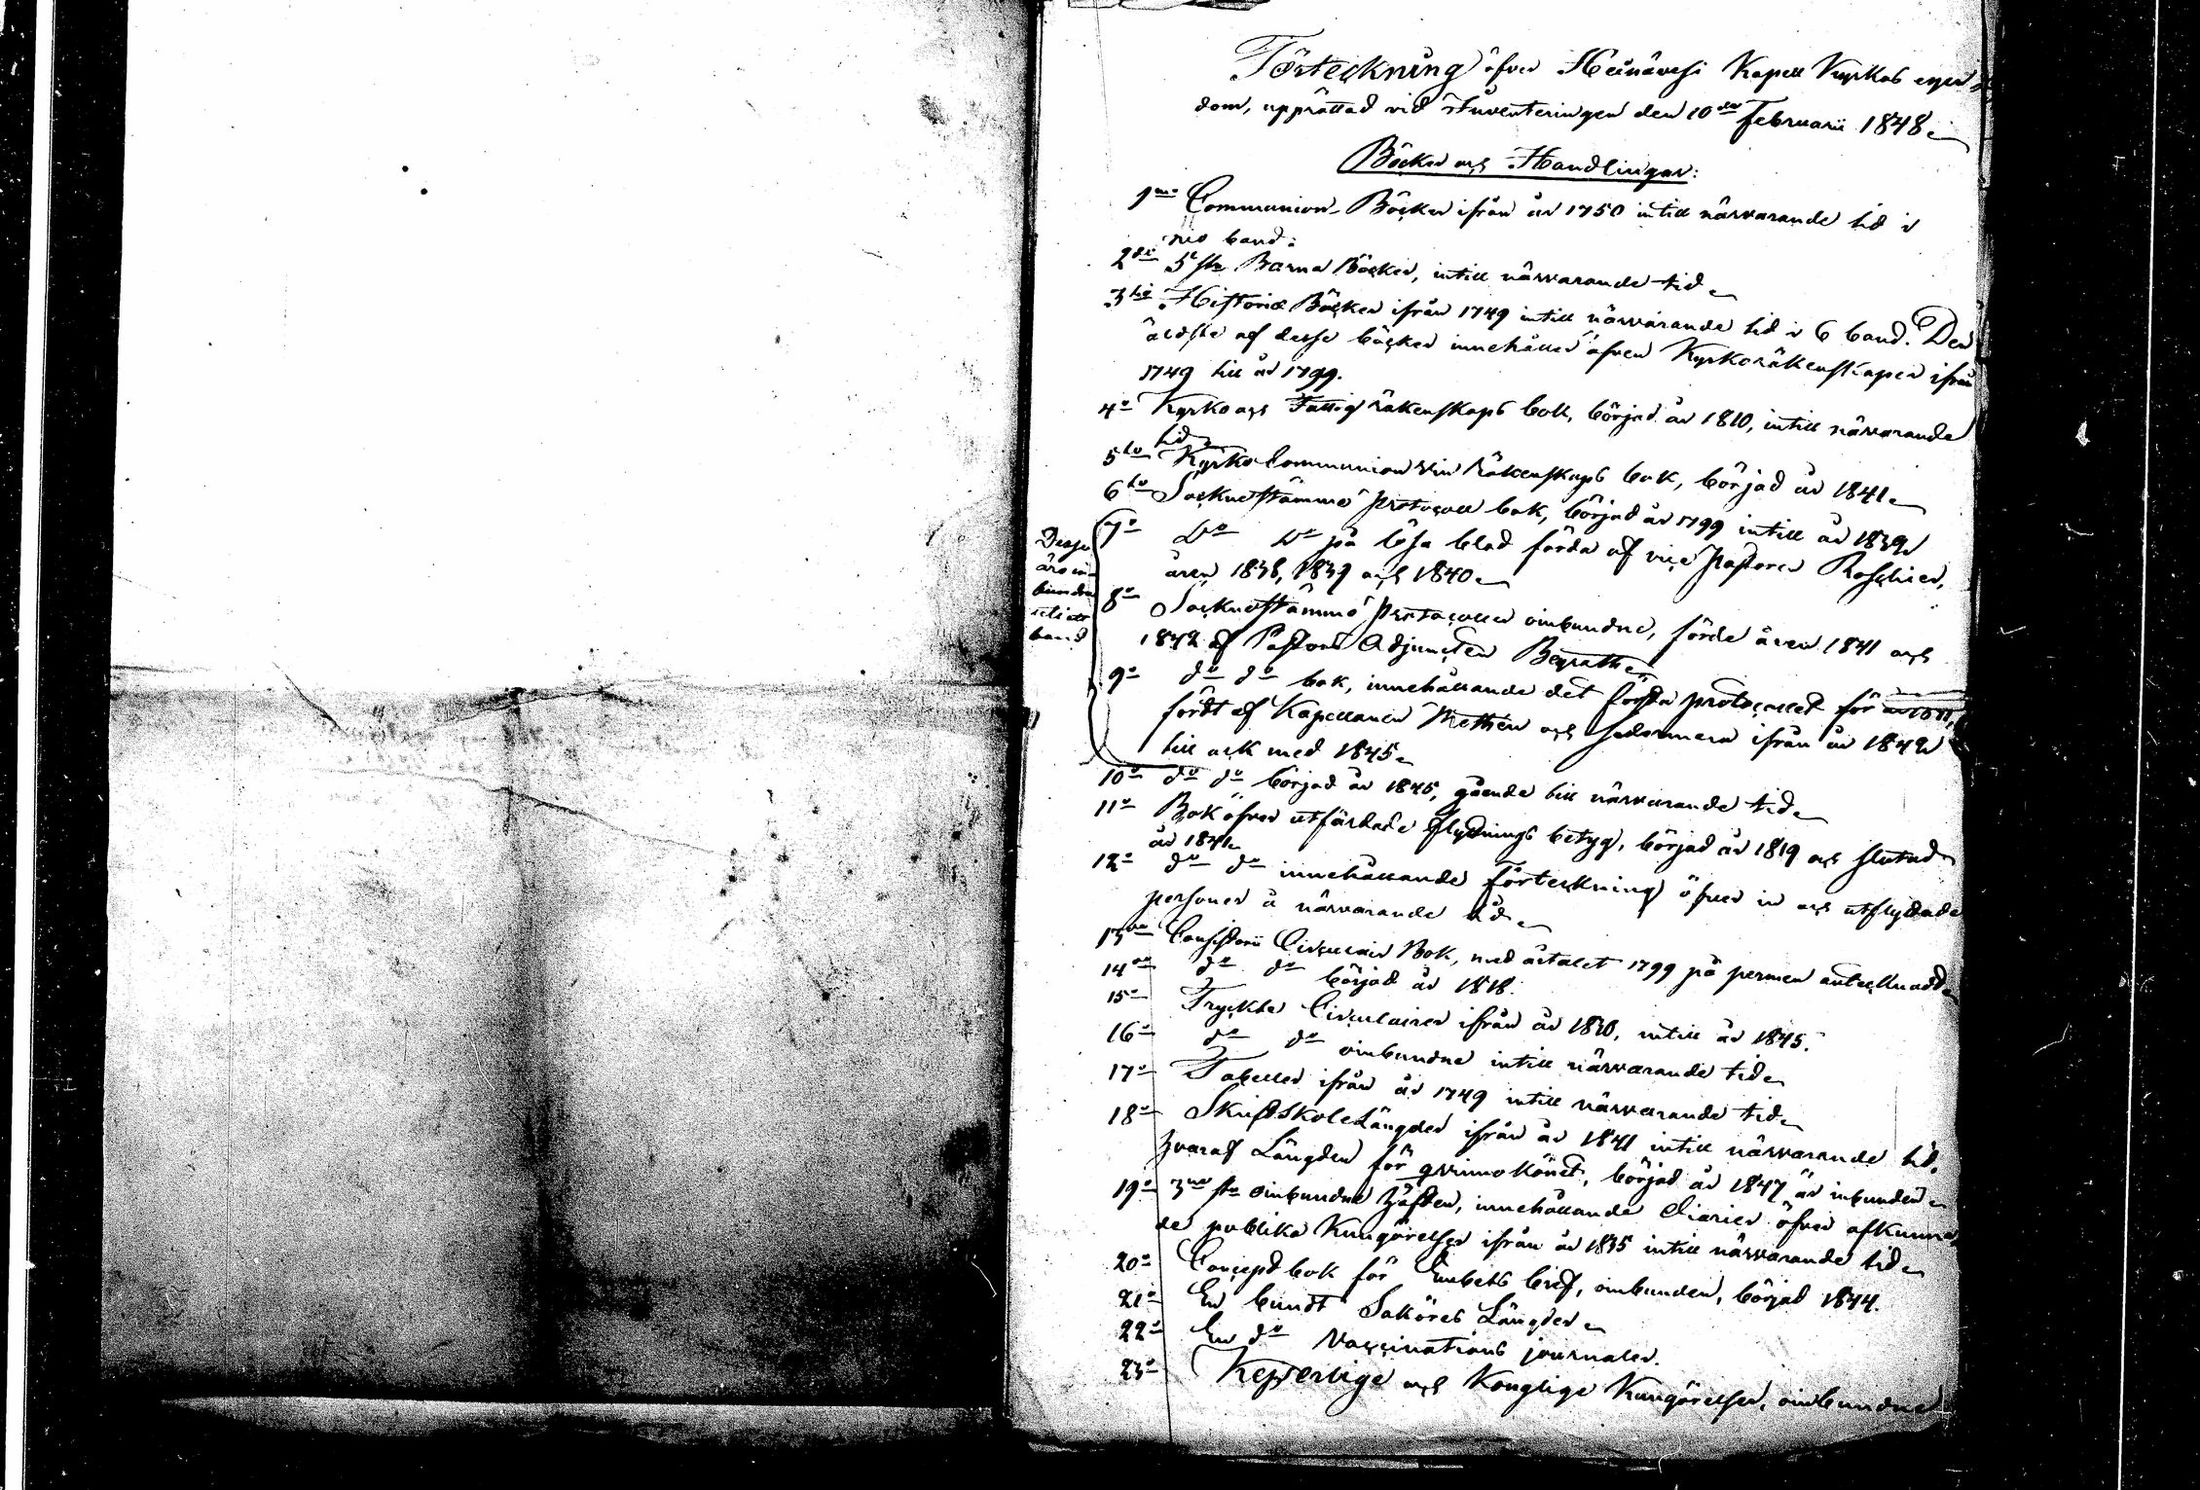 Förteckning öfver Heinävesi Kapell Kyrkas egen-
dom, upprättad vid inventeringen den 10de Februarii 1848.
Böcker och Handlingar:
1mo Communion-Böcker ifrån år 1750 intill närvarande tid i
nio band.
2do 5 st. Barna Böcker, intill närvarande tid.
3tio Historiæ Böcker ifrån 1749 intill närvarande tid i 6 band. Den
äldste af desse böcker innehåller äfven Kyrkoräkenskaper ifrån
1749 till år 1799.
4o Kyrko och Fattig räkenskaps bok, börjad år 1810, intill närvarande
tid.
5to Kyrko Communion vin räkenskaps bok, börjad år 1841.
6to Sockenstämmo protocoll bok, börjad år 1799 intill år 1839.
Desse
äro in-
bundne
uti ett
band
7o Do Do på lösa blad förda af vice Pastoren Roschier,
åren 1838, 1839 och 1840.
8o Sockenstämmo protocoller oinbundne, förde åren 1841 och
1842 af Pastors Adjuncten Bergrath.
9o do do bok, innehållande det första protocollet för
fördt af Kapellanen Methén och sedermera ifrån år 1842
till och med 1845.
10o do do börjad år 1845, gående till närvarande tid.
11o Bok öfver utfärdade flyttnings betyg, börjad år 1819 och slutad
år 1841.
12o do do innehållande förteckning öfver in och utflyttade
personer å närvarande tid.
13o Consistorii Circulair Bok, med årtalet 1799 på permen antecknadt.
14o do do börjad år 1818.
15o Tryckte Circulairer ifrån år 1810, intill år 1845.
16o do do oinbundne intill närvarande tid.
17o Tabeller ifrån år 1749 intill närvarande tid.
18o Skriftskole Längder ifrån år 1841 intill närvarande tid,
hvaraf Längden för qvinnokönet, börjad år 1847 är inbunden.
19o 3ne st. oinbundne häften, innehållande Diarier öfver afkunna-
de publika Kungörelser ifrån år 1835 intill närvarande tid.
20o Concept bok för Embets bref, oinbunden, börjad 1844.
21o En bundt Saköres Längder.
22o En do Vaccinations journaler.
23o Kejserlige och Konglige Kungörelser, oinbundne